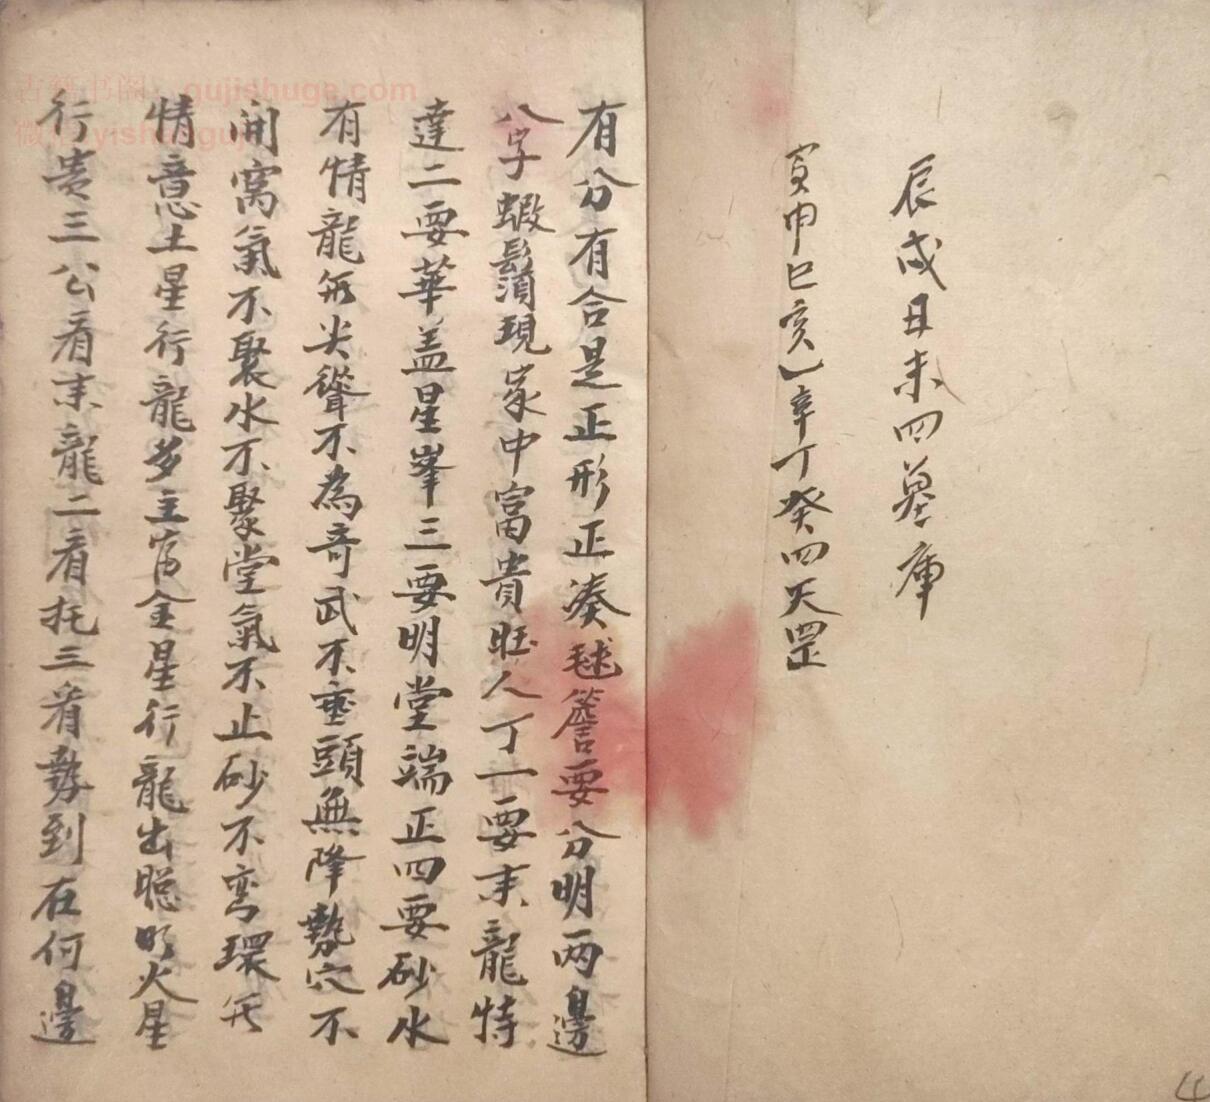 辰戌丑未四墓庫
寅申巳亥乙辛丁癸四天罡
有分有合是正形正湊毬簷要分明两邊
八字蝦鬚現家中富貴旺人丁一要来龍特
達二要華盖星峯三要明堂端正四要砂水
有情龍不為奇武不垂頭無降勢穴不
開窩氣不聚水不聚堂氣不止砂不弯環
情意土星行龍多主富金星行龍出聪明火星
行貴三公看来龍二看托三看勢到在何邊
古籍书阁 gujishuge.com
4